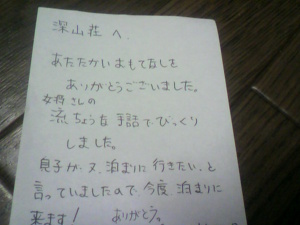 深山荘へ
あたたかいおもてなしを
ありがとうございました。
女将さんの
流ちょうな手話でびっくり
しました。
息子が、又、泊まりに行きたい、と
言っていましたので、今度、泊まりに
来ます! ありがとう。